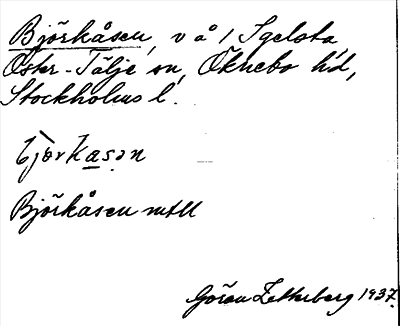 Björkåsen, v å / Igelsta,
Öster-Tälje sn, Öknebo hd,
Stockholms l.
bjørkasən
Björkåsen mtll
Göran Zetterberg 1937.